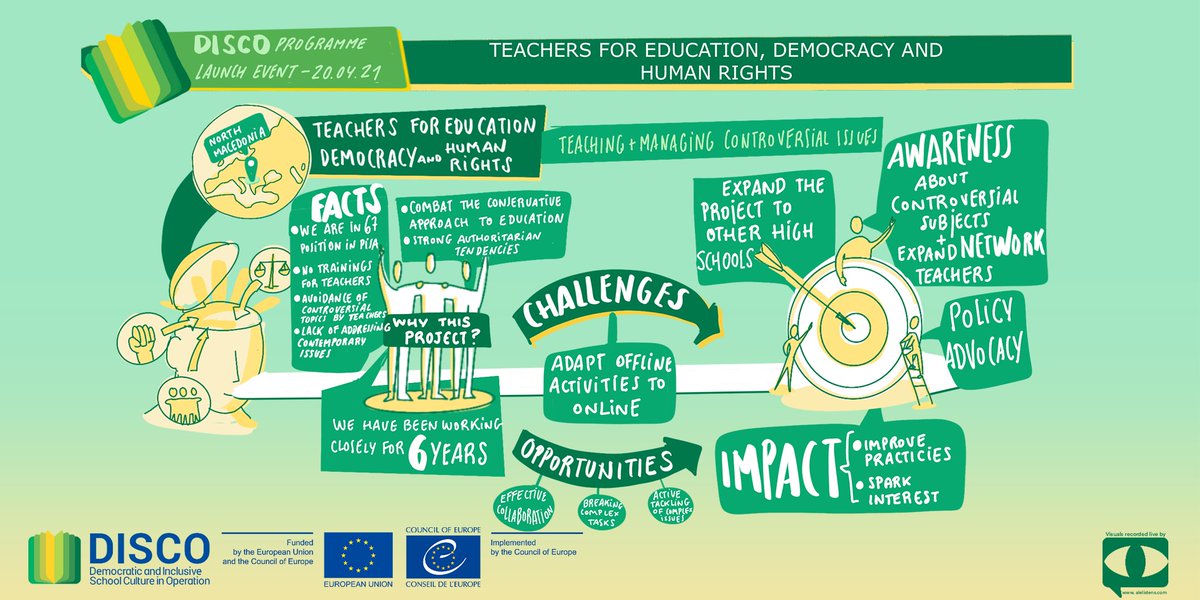 DISCO PROGRAMME
LAUNCH EVENT - 20.04.21
TEACHERS FOR EDUCATION, DEMOCRACY AND
HUMAN RIGHTS
NORTH
MACEDONIA
TEACHERS FOR EDUCATION
DEMOCRACY AND HUMAN
RIGHTS
TEACHING + MANAGING CONTROVERSIAL ISSUES
FACTS
• WE ARE IN 67
POSITION IN PISA
• NO TRAININGS
FOR TEACHERS
• AVOIDANCE OF
CONTROVERSIAL
TOPICS BY TEACHERS
• LACK OF ADDRESSING
CONTEMPORARY
ISSUES
• COMBAT THE CONSERVATIVE
APPROACH TO EDUCATION
• STRONG AUTHORITARIAN
TENDENCIES
WHY THIS
PROJECT?
WE HAVE BEEN WORKING
CLOSELY FOR 6 YEARS
CHALLENGES
ADAPT OFFLINE
ACTIVITIES TO
ONLINE
OPPORTUNITIES
EFFECTIVE
COLLABORATION
BREAKING
COMPLEX
TASKS
ACTIVE
TACKLING
OF COMPLEX
ISSUES
EXPAND THE
PROJECT TO
OTHER HIGH
SCHOOLS
AWARENESS
ABOUT
CONTROVERSIAL
SUBJECTS
+
EXPAND NETWORK
TEACHERS
POLICY
ADVOCACY
IMPACT
• IMPROVE
PRACTICIES
• SPARK
INTEREST
DISCO
Democratic and Inclusive
School Culture in Operation
Funded
by the European Union
and the Council of Europe
EUROPEAN UNION
COUNCIL OF EUROPE
CONSEIL DE L'EUROPE
Implemented
by the Council of Europe
Visuals recorded live by
www.alelistens.com